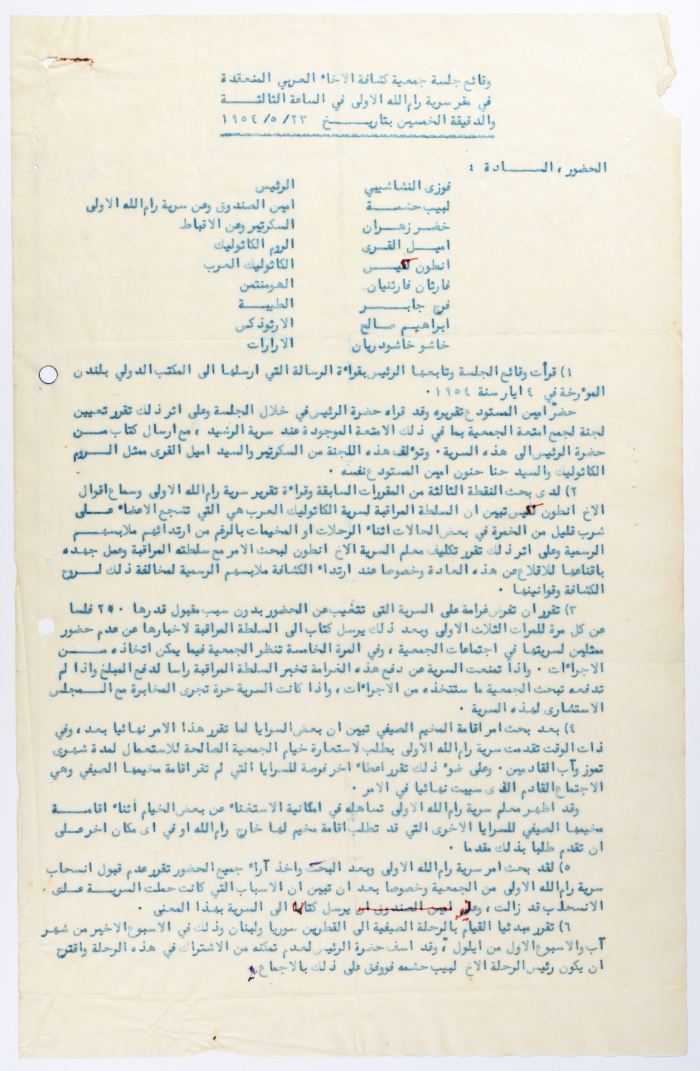 وقائع جلسة جمعية كشافة الاخاء العربي المنعقدة
في مقر سرية رام الله الاولى في الساعة الثالثة
والدقيقة الخمسين بتاريخ ٢٣/ ٥/ ١٩٥٤
الحضور ، السادة :
فوزى النشاشيبي الرئيس
لبيب حشمة امين الصندوق وعن سرية رام الله الاولى
خضر زهران السكرتير وعن الاقباط
اميل القرى الروم الكاثوليك
انطون لكيس الكاثوليك العرب
فارتان فارتنيان الهومنتمن
فرج جابر الطيبة
ابراهيم صالح الارثوذكس
خاشو خاشودريان الارارات
١) قرأت وقائع الجلسة وتابعها الرئيس بقراءة الرسالة التي ارسلها الى المكتب الدولي بلندن
المؤرخة في ٤ ايار سنة ١٩٥٤ .
حضر امين المستودع تقريره وقد قراه حضرة الرئيس في خلال الجلسة وعلى اثر ذلك تقرر تعيين
لجنة لجمع امتعة الجمعية بما في ذلك الامتعة الموجودة عند سرية الرشيد ، مع ارسال كتاب من
حضرة الرئيس الى هذه السرية . وتؤلف هذه اللجنة من السكرتير والسيد اميل القرى ممثل الروم
الكاثوليك والسيد حنا حنون امين المستودع نفسه .
٢) لدى بحث النقطة الثالثة من المقررات السابقة وقراءة تقرير سرية رام الله الاولى وسماع اقوال
الاخ انطون لكيس تبين ان السلطة المراقبة لسرية الكاثوليك العرب هي التي تشجع الاعضاء على
شرب قليل من الخمرة في بعض الحالات اثناء الرحلات او المخيمات بالرغم من ارتدائهم ملابسهم
الرسمية وعلى اثر ذلك تقرر تكليف معلم السرية الاخ انطون لبحث الامر مع سلطته المراقبة وعمل جهده
باقناعها للاقلاع عن هذه العادة وخصوصا عند ارتداء الكشافة ملابسهم الرسمية لمخالفة ذلك لروح
الكشافة وقوانينها .
٣) تقرر ان تفرض غرامة على السرية التي تتغيب عن الحضور بدون سبب مقبول قدرها ٢٥٠ فلسا
عن كل مرة للمرات الثلاث الاولى وبعد ذلك يرسل كتاب الى السلطة المراقبة لاخبارها عن عدم حضور
ممثلين لسريتها في اجتماعات الجمعية ، وفي المرة الخامسة تنظر الجمعية فيما يمكن اتخاذه من
الاجراءات . واذا تمنعت السرية عن دفع هذه الغرامة تخبر السلطة المراقبة راسا لدفع المبلغ واذا لم
تدفعه تبحث الجمعية ما ستتخذه من الاجراءات ، واذا كانت السرية حرة تجرى المخابرة مع المجلس
الاستشارى لهذه السرية .
٤) بعد بحث امر اقامة المخيم الصيفي تبين ان بعض السرايا لما تقرر هذا الامر نهائيا بعد ، وفي
ذات الوقت تقدمت سرية رام الله الاولى بطلب لاستعارة خيام الجمعية الصالحة للاستعمال لمدة شهرى
تموز وآب القادمين . وعلى ضوء ذلك تقرر اعطاء اخر فرصة للسرايا التي لم تقر اقامة مخيمها الصيفي وهي
الاجتماع القادم الذى سيبت نهائيا في الامر .
وقد اظهر معلم سرية رام الله الاولى تساهله في امكانية الاستغناء عن بعض الخيام أثناء اقامة
مخيمها الصيفي للسرايا الاخرى التي قد تطلب اقامة مخيم لها خارج رام الله او في اى مكان اخر على
ان تقدم طلبا بذلك مقدما .
٥) لقد بحث امر سرية رام الله الاولى وبعد البحث واخذ آراء جميع الحضور تقرر عدم قبول انسحاب
سرية رام الله الاولى من الجمعية وخصوصا بعد ان تبين ان الاسباب التي كانت حملت السرية على
الانسحاب قد زالت ، امين الصندوق ان يرسل كتابا الى السرية بهذا المعنى .
٦) تقرر مبدئيا القيام بالرحلة الصيفية الى القطرين سوريا ولبنان وذلك في الاسبوع الاخير من شهر
آب والاسبوع الاول من ايلول ، وقد اسف حضرة الرئيس لعدم تمكنه من الاشتراك في هذه الرحلة واقترح
ان يكون رئيس الرحلة الاخ لبيب حشمه فووفق على ذلك بالاجماع .